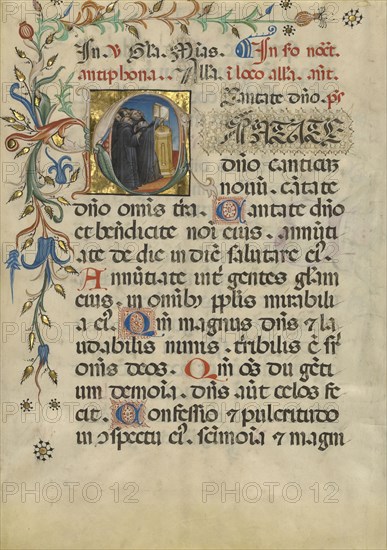 In V gla. Mias. In fo noct.
antiphona. Alla. i loco alla. ant.
Cantate dno. ps
CANTATE
dño canticuz
novũ. cãtate
dño omĩs tr̃a. Cantate dño
et bẽndicite noĩ eius. annũti
ate de die in diẽ salutare eĩ.
Annũtiate int̃ gentes gl̃am
eius. in omĩb; ppl̃is mirabili
a eĩ. Qm̃ magnus dñs ⁊ la
udabilis nimis. tr̃ribilis ẽ sr̃
omĩs deos. Qm̃ oẽs dii gẽti
um demoĩa. dñs aũt celos fe
cit. Confessio ⁊ pulcritudo
in ɔspectu eĩ. scĩmoĩa ⁊ magñi
PHOTO 12